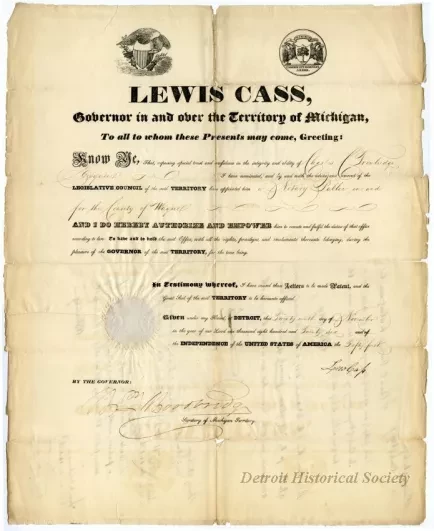 LEWIS CASS,
Governor in and over the Territory of Michigan,
To all to whom these Presents may come, Greeting:
Know Ye, That, reposing special trust and confidence in the integrity and ability of Charles C Trowbridge
Esquire I have nominated, and by and with the advice and consent of the
LEGISLATIVE COUNCIL of the said TERRITORY have appointed him a Notary Public in and
for the County of Wayne
AND I DO HEREBY AUTHORIZE AND EMPOWER him to execute and fulfil the duties of that office
according to law: To have and to hold the said Office, with all the rights, privileges and emoluments thereunto belonging, during the
pleasure of the GOVERNOR of the said TERRITORY, for the time being.
In Testimony whereof, I have caused these Letters to be made Patent, and the
Great Seal of the said TERRITORY to be hereunto affixed.
Given under my Hand, at DETROIT, this day of November
in the year of our Lord one thousand eight hundred and twenty six and of
the INDEPENDENCE of the UNITED STATES OF AMERICA the fifty first
Lew Cass
BY THE GOVERNOR:
Woodbridge
Secretary of Michigan Territory.
Detroit Historical Society